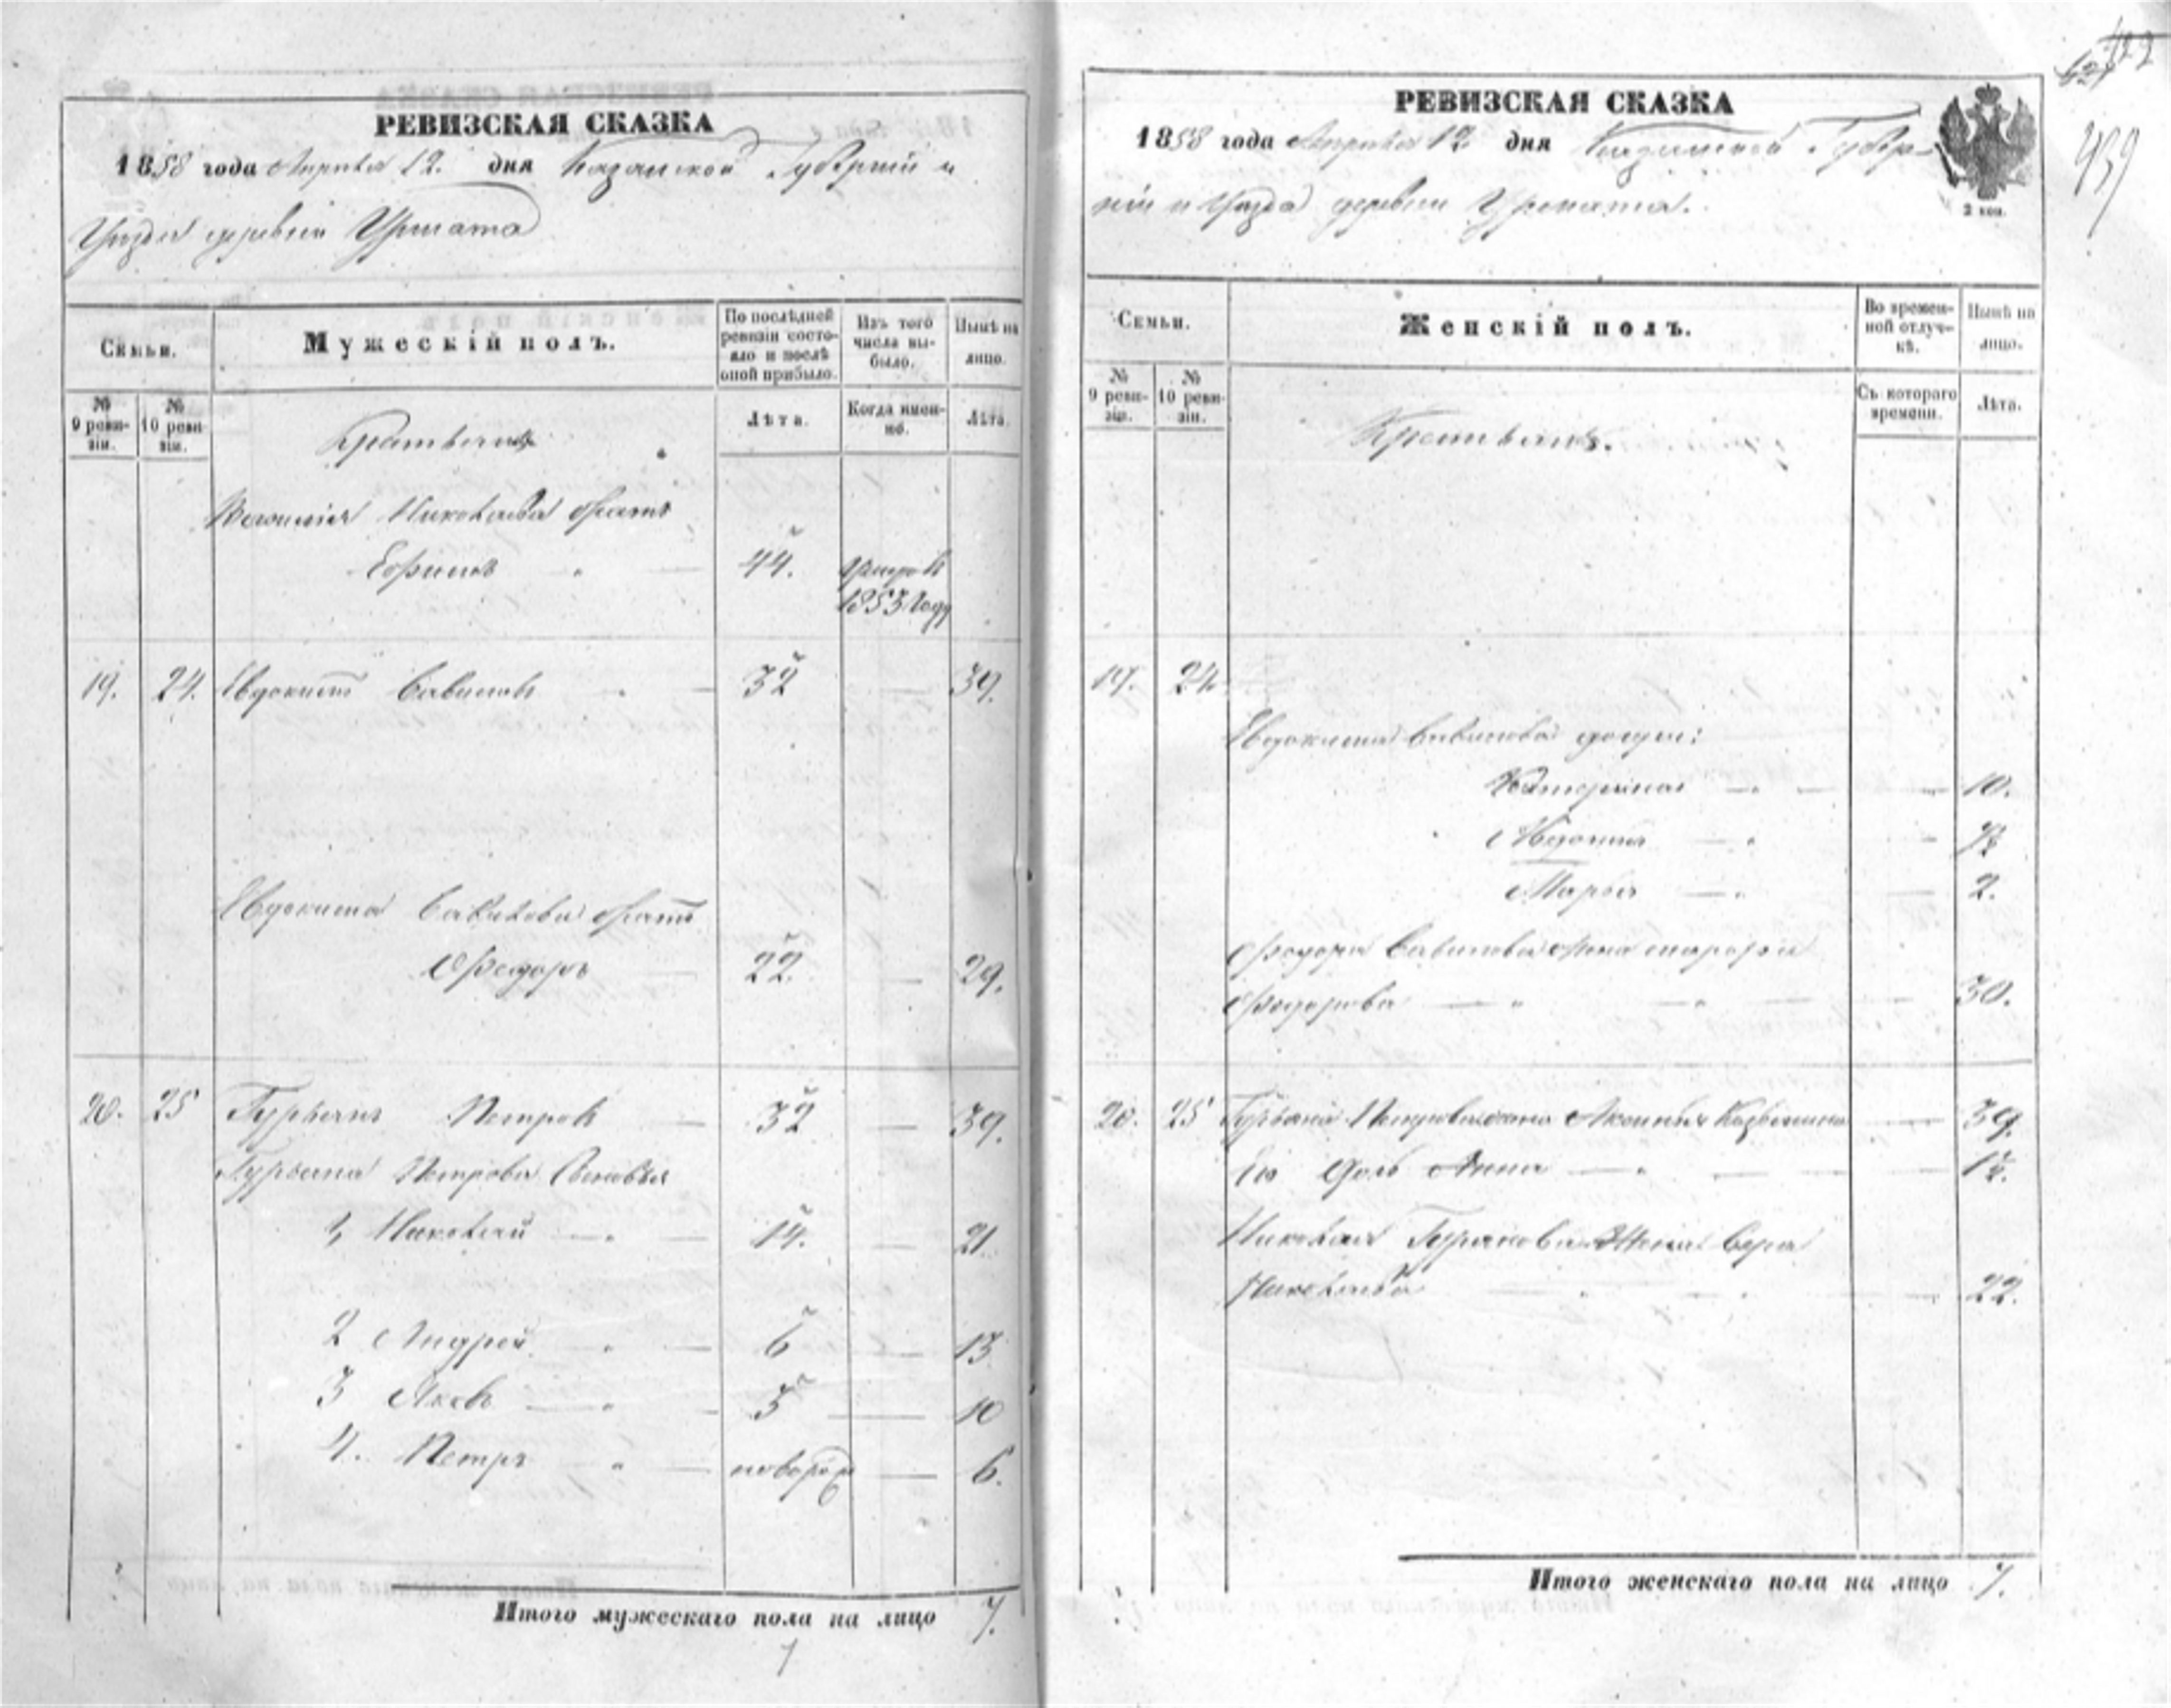 РЕВИЗСКАЯ СКАЗКА
1858 года Апреля 12. дня Казанской Губерніи и
Уезда деревни Урмата
Семьи.
Мужескій полъ.
По послѣдней ревизіи состояло и послѣ оной прибыло.
Изъ того числа выбыло.
Нынѣ на лицо.
№ 9 ревизіи.
№ 10 ревизіи.
Лѣта.
Когда именно.
Лѣта.
Крестьянъ
Василія Николаева братъ
Ефимъ 44.
1853 году
19. 24. Евдокимъ 32 39.
Евдокима братъ
Федоръ 22. 29.
20. 25 Гурьянъ Петровъ 32 39.
Гурьяна Петрова Сыновья
1, Николай 14. 21.
2 Андрей 6 13
3 Яковъ 3 10
4. Петръ новорож 6.
Итого мужескаго пола на лицо 7.
РЕВИЗСКАЯ СКАЗКА
1858 года Апреля 12 дня Казанской Губер-
ніи и Уезда деревни Урмата.
2 коп.
439
Семьи.
Женскій полъ.
Во временной отлучкѣ.
Нынѣ на лицо.
№ 9 ревизіи.
№ 10 ревизіи.
Съ котораго времени.
Лѣта.
Крестьянъ.
19. 24
Евдокима дочери:
Катерина 10.
Авдотья
Марья 2.
Федора жена
Федорова 30.
20. 25 Гурьяна Петрова жена 39.
Его Дочь Анна 12.
Николая Гурьянова Жена Вера
Николаева 22.
Итого женскаго пола на лицо 7.